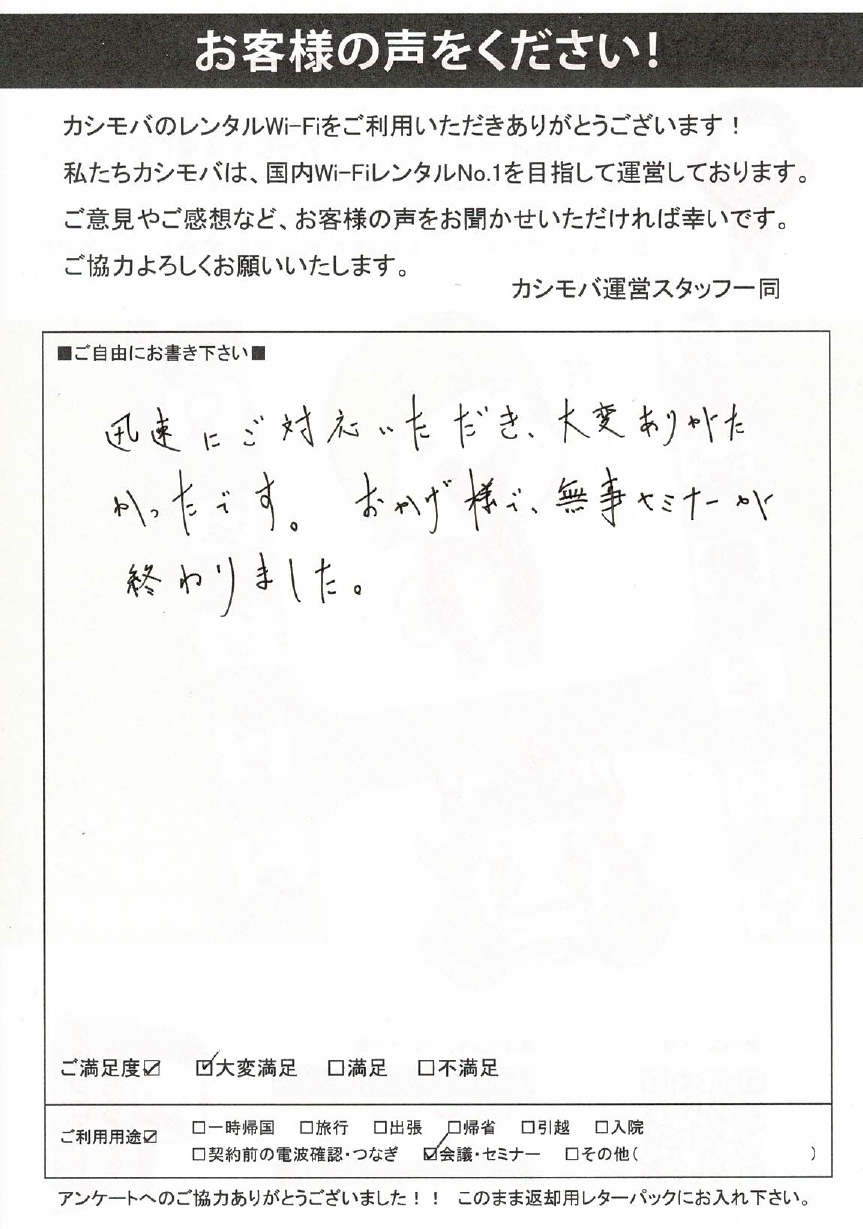 お客様の声をください！
カシモバのレンタルWi-Fiをご利用いただきありがとうございます！
私たちカシモバは、国内Wi-FiレンタルNo.1を目指して運営しております。
ご意見やご感想など、お客様の声をお聞かせいただければ幸いです。
ご協力よろしくお願いいたします。
カシモバ運営スタッフ一同
■ご自由にお書き下さい■
迅速にご対応いただき、大変ありがた
かったです。おかげ様で、無事セミナーが
終わりました。
ご満足度☑ ☑大変満足 □満足 □不満足
ご利用用途☑ □一時帰国 □旅行 □出張 □帰省 □引越 □入院
□契約前の電波確認・つなぎ ☑会議・セミナー □その他( )
アンケートへのご協力ありがとうございました！！ このまま返却用レターパックにお入れ下さい。